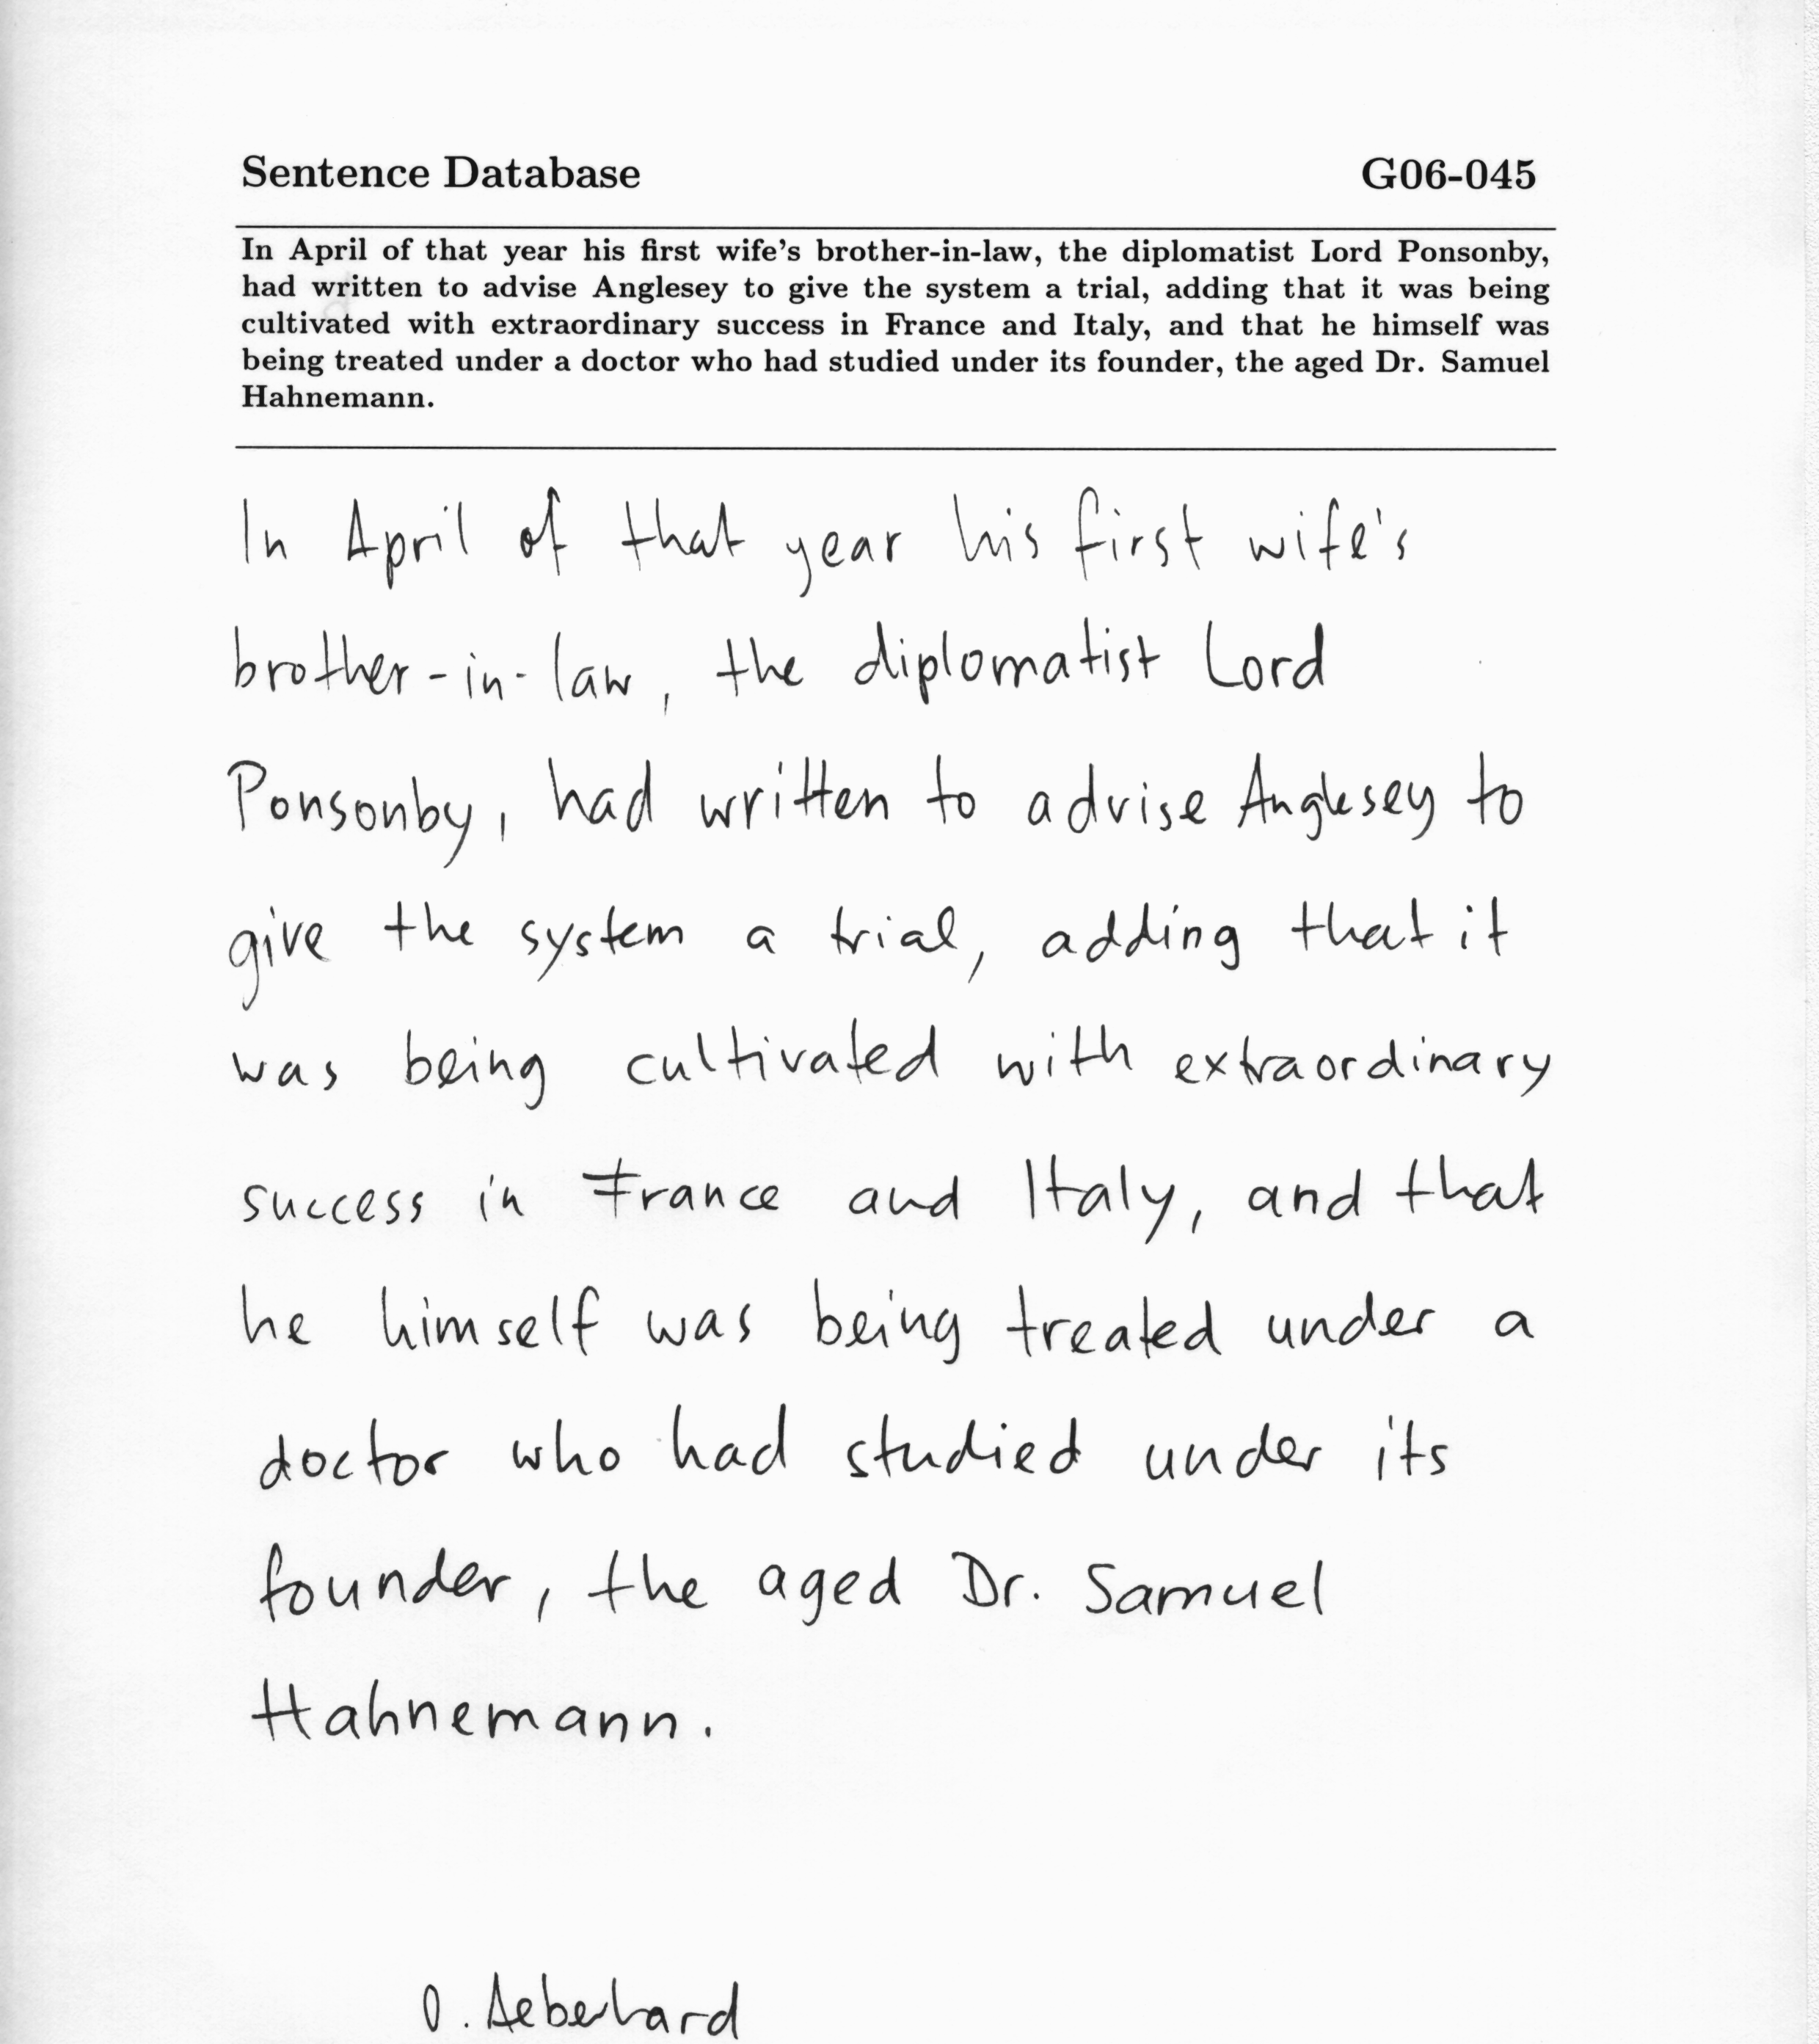 Sentence Database G06-045
In April of that year his first wife's brother-in-law, the diplomatist Lord Ponsonby,
had written to advise Anglesey to give the system a trial, adding that it was being
cultivated with extraordinary success in France and Italy, and that he himself was
being treated under a doctor who had studied under its founder, the aged Dr. Samuel
Hahnemann.
In April of that year his first wife's
brother-in-law, the diplomatist Lord
Ponsonby, had written to advise Anglesey to
give the system a trial, adding that it
was being cultivated with extraordinary
success in France and Italy, and that
he himself was being treated under a
doctor who had studied under its
founder, the aged Dr. Samuel
Hahnemann.
O. Aeberhard